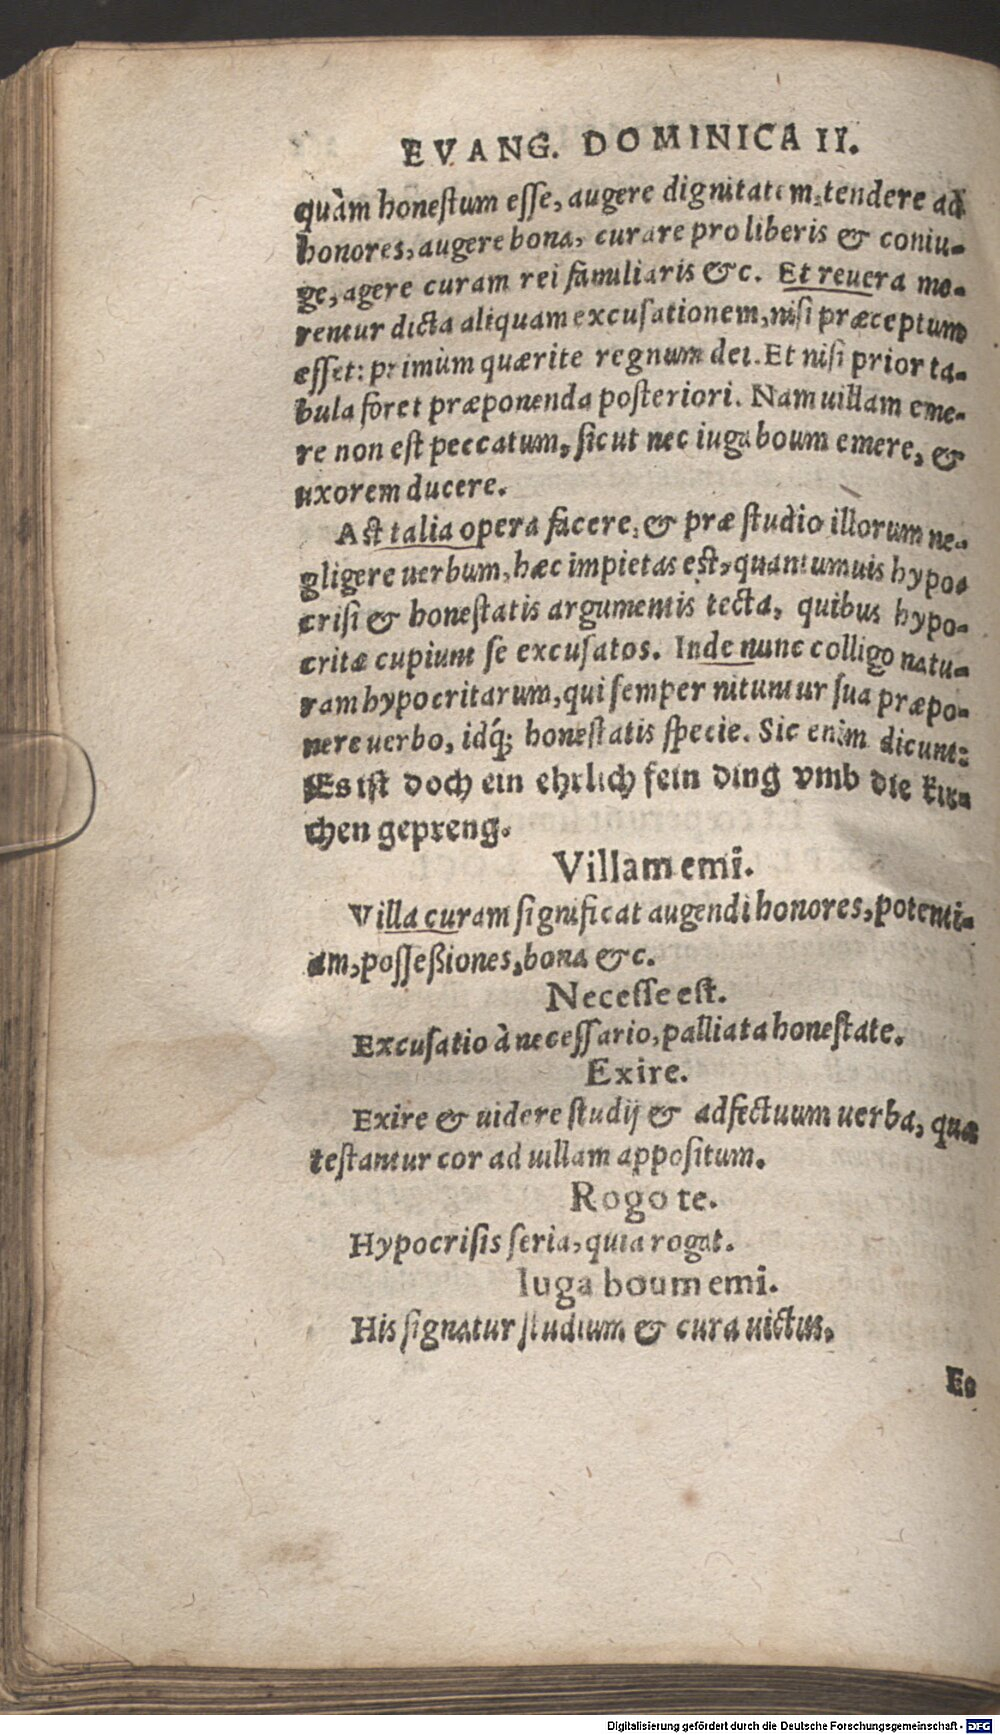 EVANG. DOMINICA II.
quàm honestum esse, augere dignitatem, tendere ad
honores, augere bona, curare pro liberis & coniu-
ge, agere curam rei familiaris &c. Et reuera me-
rentur dicta aliquam excusationem, nisi præceptum
esset: primùm quærite regnum dei. Et nisi prior ta-
bula foret præponenda posteriori. Nam uillam eme-
re non est peccatum, sicut nec iuga boum emere, &
uxorem ducere.
Ast talia opera facere, & præ studio illorum ne-
gligere uerbum, hæc impietas est, quantumuis hypo-
crisi & honestatis argumentis tecta, quibus hypo-
critæ cupiunt se excusatos. Inde nunc colligo natu-
ram hypocritarum, qui semper nituntur sua præpo-
nere uerbo, idq́; honestatis specie. Sic enim dicunt:
Es ist doch ein ehrlich fein ding vmb die kir-
chen gepreng.
Villam emi.
Villa curam significat augendi honores, potenti-
am, possessiones, bona &c.
Necesse est.
Excusatio à necessario, palliata honestate.
Exire.
Exire & uidere studij & adfectuum uerba, quæ
testantur cor ad uillam appositum.
Rogo te.
Hypocrisis seria, quia rogat.
Iuga boum emi.
His signatur studium & cura uictus.
Eo
Digitalisierung gefördert durch die Deutsche Forschungsgemeinschaft - DFG